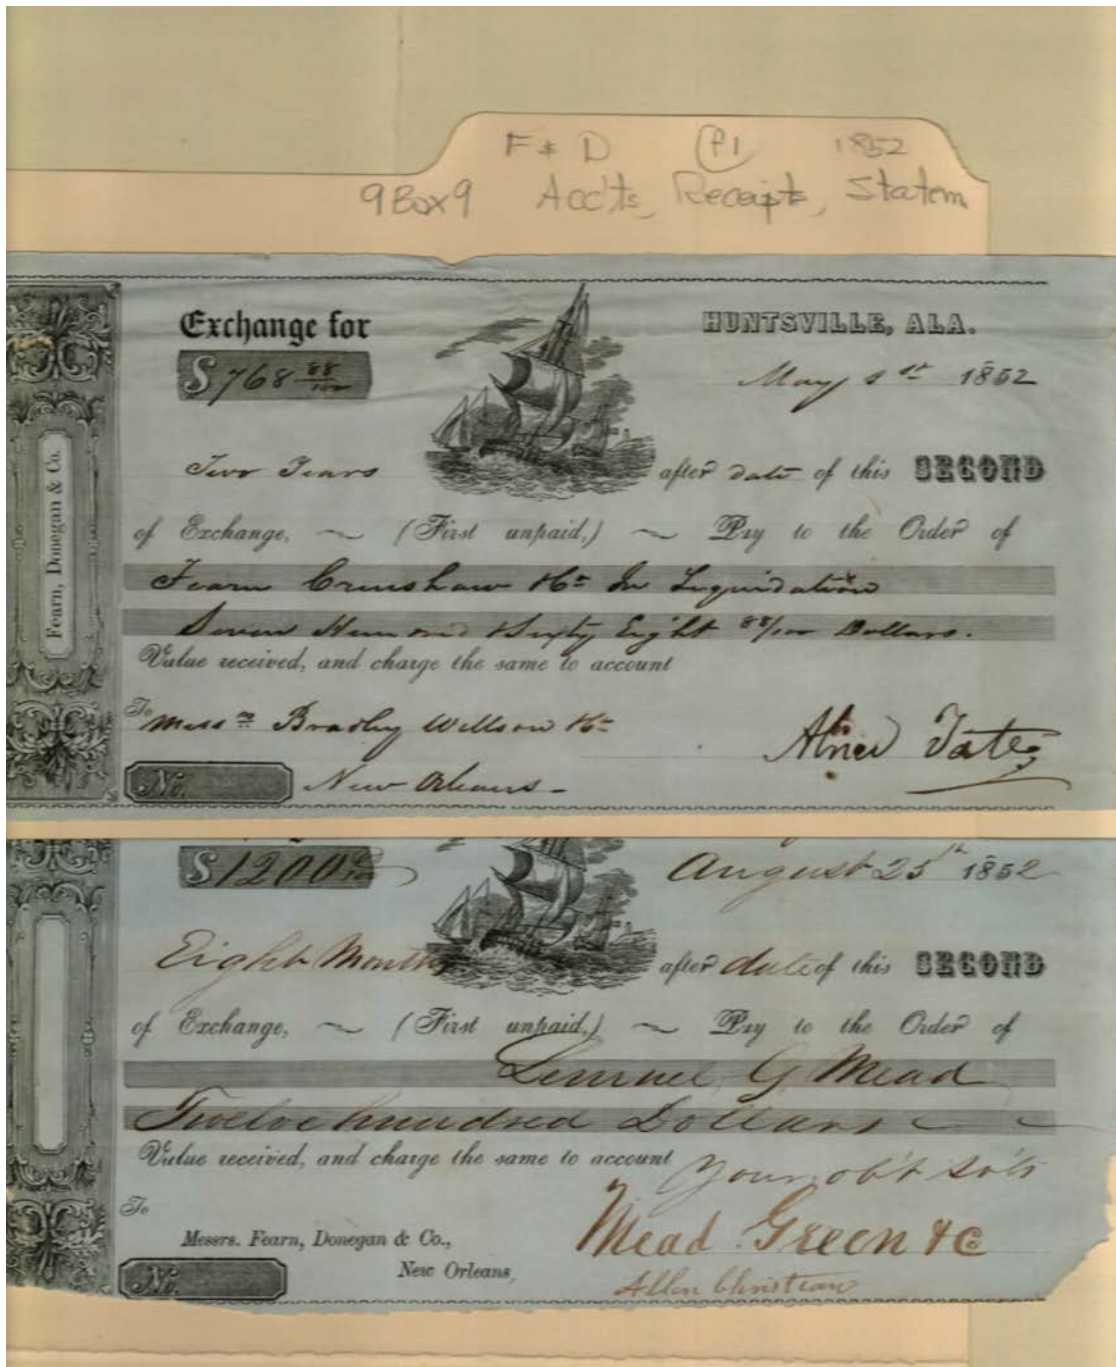 F & D P1 1852
9Box9 Acc'ts, Receipts, Statem
Exchange for HUNTSVILLE, ALA.
$ 768 88/100 May 1st 1852
Two Years after date of this SECOND
of Exchange, (First unpaid,) Pay to the Order of
Fearn Crenshaw & Co In Liquidation
Seven Hundred & Sixty Eight 88/100 Dollars.
Value received, and charge the same to account
To Messrs Bradley Willson & Co
Abner Tate
No. New Orleans
Fearn, Donegan & Co.
$ 1200 August 25th 1852
Eight Months after date of this SECOND
of Exchange, (First unpaid,) Pay to the Order of
Lemuel G Mead
Twelve hundred Dollars
Value received, and charge the same to account
Your ob't
To
Messrs. Fearn, Donegan & Co., Mead Green & C
New Orleans,
No. Allen Christian